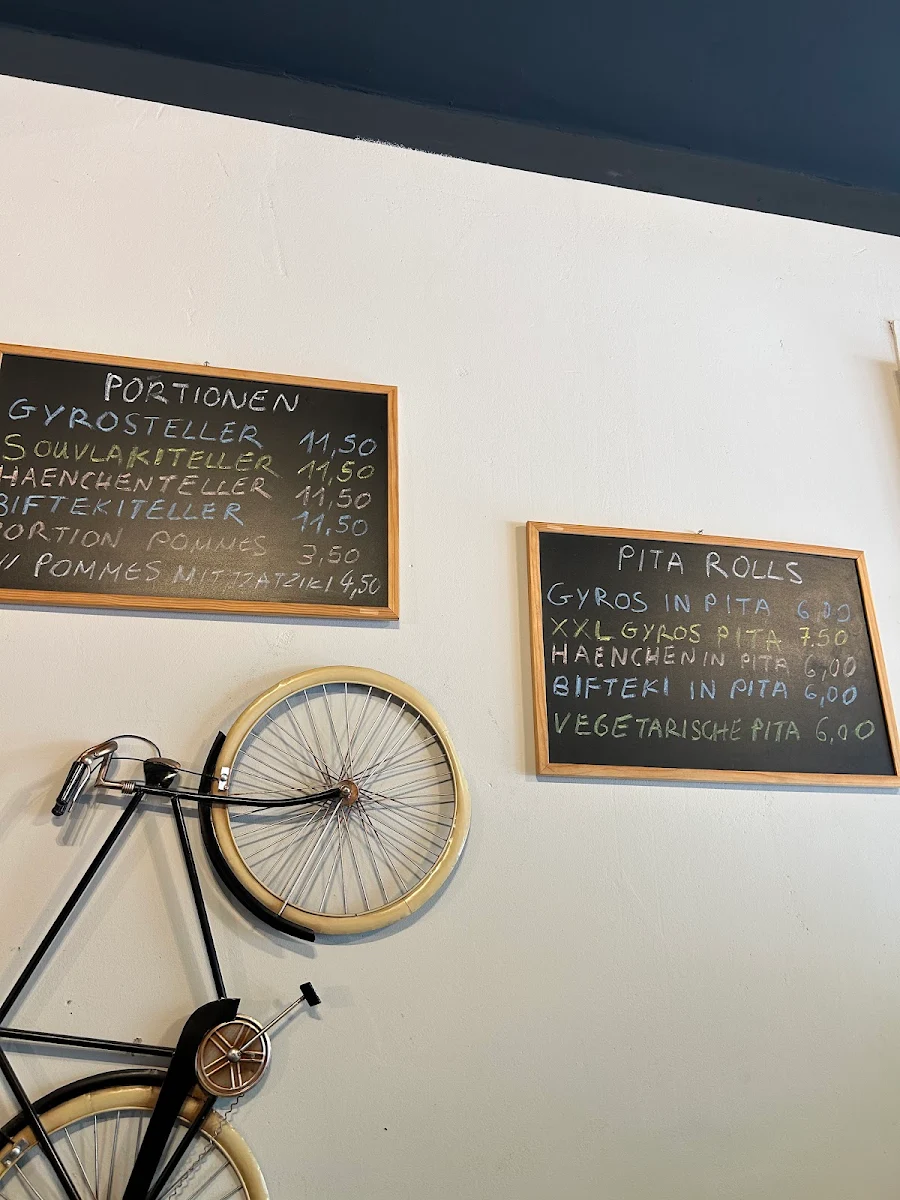 PORTIONEN
GYROSTELLER 11,50
SOUVLAKITELLER 11,50
HAENCHENTELLER 11,50
BIFTEKITELLER 11,50
PORTION POMMES 3,50
// POMMES MIT TZATZIKI 4,50
PITA ROLLS
GYROS IN PITA 6,00
XXL GYROS PITA 7.50
HAENCHEN IN PITA 6,00
BIFTEKI IN PITA 6,00
VEGETARISCHE PITA 6,00